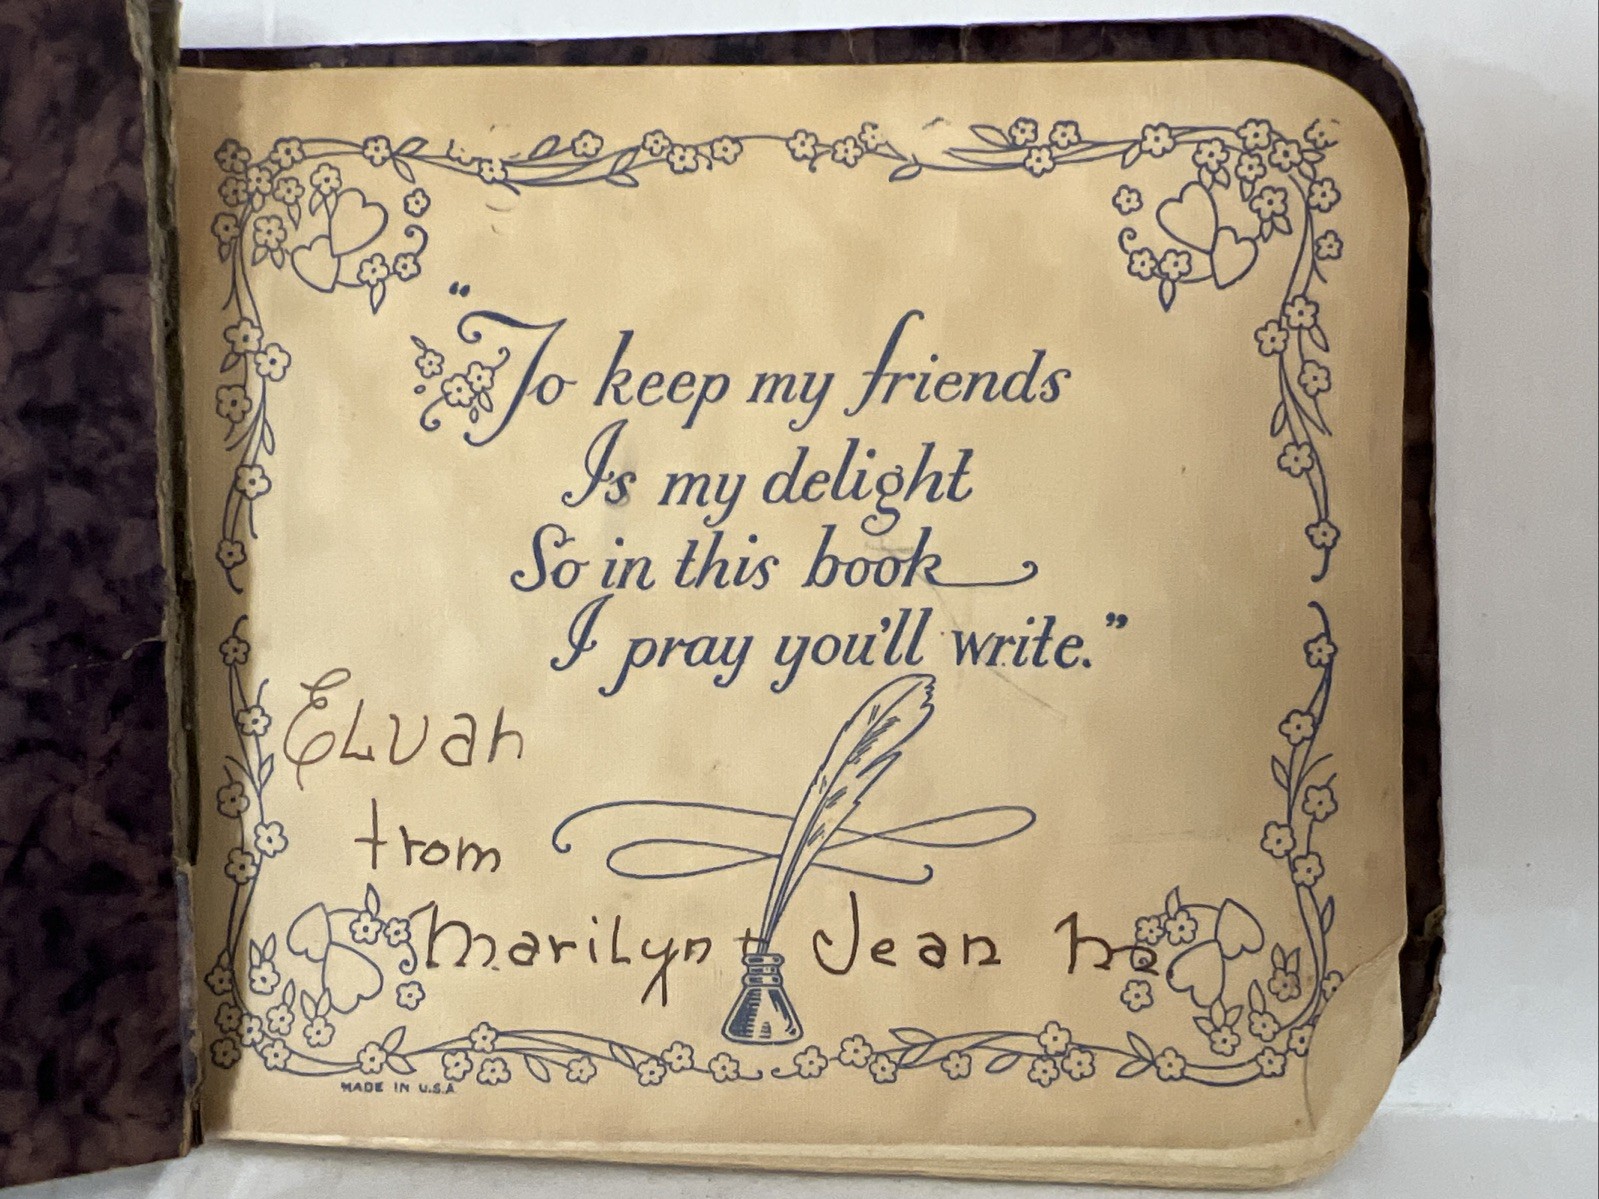 “To keep my friends
Is my delight
So in this book
I pray you’ll write.”
ELvah
from
Marilyn + Jean
MADE IN U.S.A